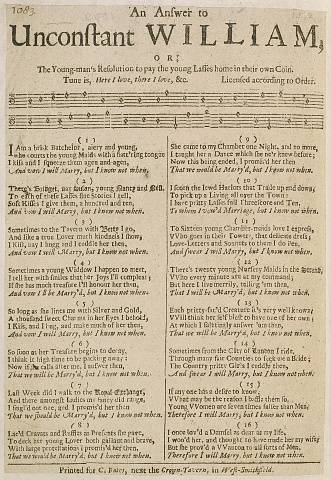 1083.
An Answer to
Unconstant WILLIAM,
OR;
The Young-man's Resolution to pay the young Lasses home in their own Coin.
Tune is, Here I love, there I love, &c. Licensed according to Order.
(1)
I Am a brisk Batchelor, aiery and young,
who courts the young Maids with a flatt'ring tongue
I kiss and I squeeze them agen and agen,
And vow I will Marry, but I know not when.
(2)
There's Bridget, and Susan, young Nancy and Nell,
To each of these Lasses fine Stories I tell,
Soft Kisses I give them, a hundred and ten,
And vow I will Marry, but I know not when.
(3)
Sometimes to the Tavern with Betty I go,
And like a true Lover much kindness I show;
I Kiss, nay I hugg and I coddle her then,
And vow I will Marry, but I know not when.
(4)
Sometimes a young Widdow I happen to meet,
I tell her with smiles that her Joys I'll compleat;
If she has much treasure I'll honour her then,
And vow I'll be Marry'd, but I know not when.
(5)
So long as she lines me with Silver and Gold,
A thousand sweet Charms in her Eyes I behold,
I Kiss, and I hug, and make much of her then,
And vow I will Marry, but I know not when.
(6)
So soon as her Treasure begins to decay,
I think it high time to be packing away;
Now if she calls after me, I answer then,
That we will be Marry'd, but I know not when.
(7)
Last Week did I walk to the Royal-Exchange,
And there amongst Ladies my fancy did range,
I sing'd out one, and I promis'd her then
That we should be Marry'd, but I know not when.
(8)
Lac'd Cravats and Ruffles as Presents she gave,
To deck her young Lover both gallant and brave,
With large protestations I promis'd her then,
That we would be Marry'd, but I know not when.
(9)
She came to my Chamber one Night, and to more,
I taught her a Dance which she ne'r knew before;
Now this being ended, I promis'd her then
That we would be Marry'd, but I know not when.
(10)
I scorn the lewd Harlots that Trade up and down,
To pick up a Living all over the Town;
I have pritty Lasses full Threescore and Ten,
To whom I vow'd Marriage, but I know not when.
(11)
To Sixteen young Chamber-maids love I express,
VVho goes in their Tower, that delicate dress;
Love-Letters and Sonnets to them I do Pen,
And swear I will Marry, but I know not when.
(12)
There's twenty young Nursery Maids in the Strand,
VVho every minute are at my command;
But here I live merrily, telling 'em then,
That I will be Marry'd, but I know not when.
(13)
Each pritty fac'd Creature it's very well known
VVill think her self blest to have one of her own;
At which I flattringly answer 'um then,
That we will be Marry'd, but I know not when.
(14)
Sometimes from the City of London I ride,
Through many fine Counties to seek me a Bride;
The Country pritty Girls I coddle then,
And swear I will Marry, but I know not when.
(15)
If any one has a desire to know,
VVhat may be the reason I baffle them so,
Young VVomen are seven times falser than Men,
Therefore I will Marry, but I know not when.
(16)
I once lov'd a Damsel as dear as my life,
I woo'd her, and thought to have made her my wife;
But she prov'd a VVanton to all sorts of Men,
Therefore I will Marry, but I know not when.
Printed for C. Bates, next the Crown-Tavern, in West-Smithfield.